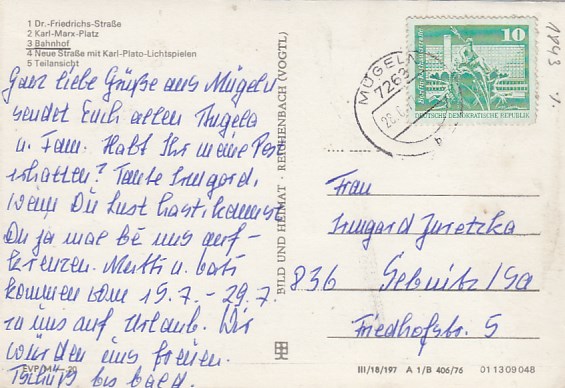 1 Dr.-Friedrichs-Straße
2 Karl-Marx-Platz
3 Bahnhof
4 Neue Straße mit Karl-Plato-Lichtspielen
5 Teilansicht
Ganz liebe Grüße aus Mügeln
sendet Euch allen Angela
u. Fam. Habt Ihr meine Post
erhalten? Tante Irmgard,
wenn Du Lust hast, kommst
Du ja mal bei uns auf-
kreuzen. Mutti u. Vati
kommen vom 15.7. - 29.7.
zu uns auf Urlaub. Wir
würden uns freuen.
Tschüß bis bald.
BILD UND HEIMAT · REICHENBACH (VOGTL)
MÜGELN
7263
10
DEUTSCHE DEMOKRATISCHE REPUBLIK
1843
Frau
Irmgard Juretzka
836 Sebnitz/Sa
Friedhofstr. 5
III/18/197 A 1/B 406/76 01 13 09 048